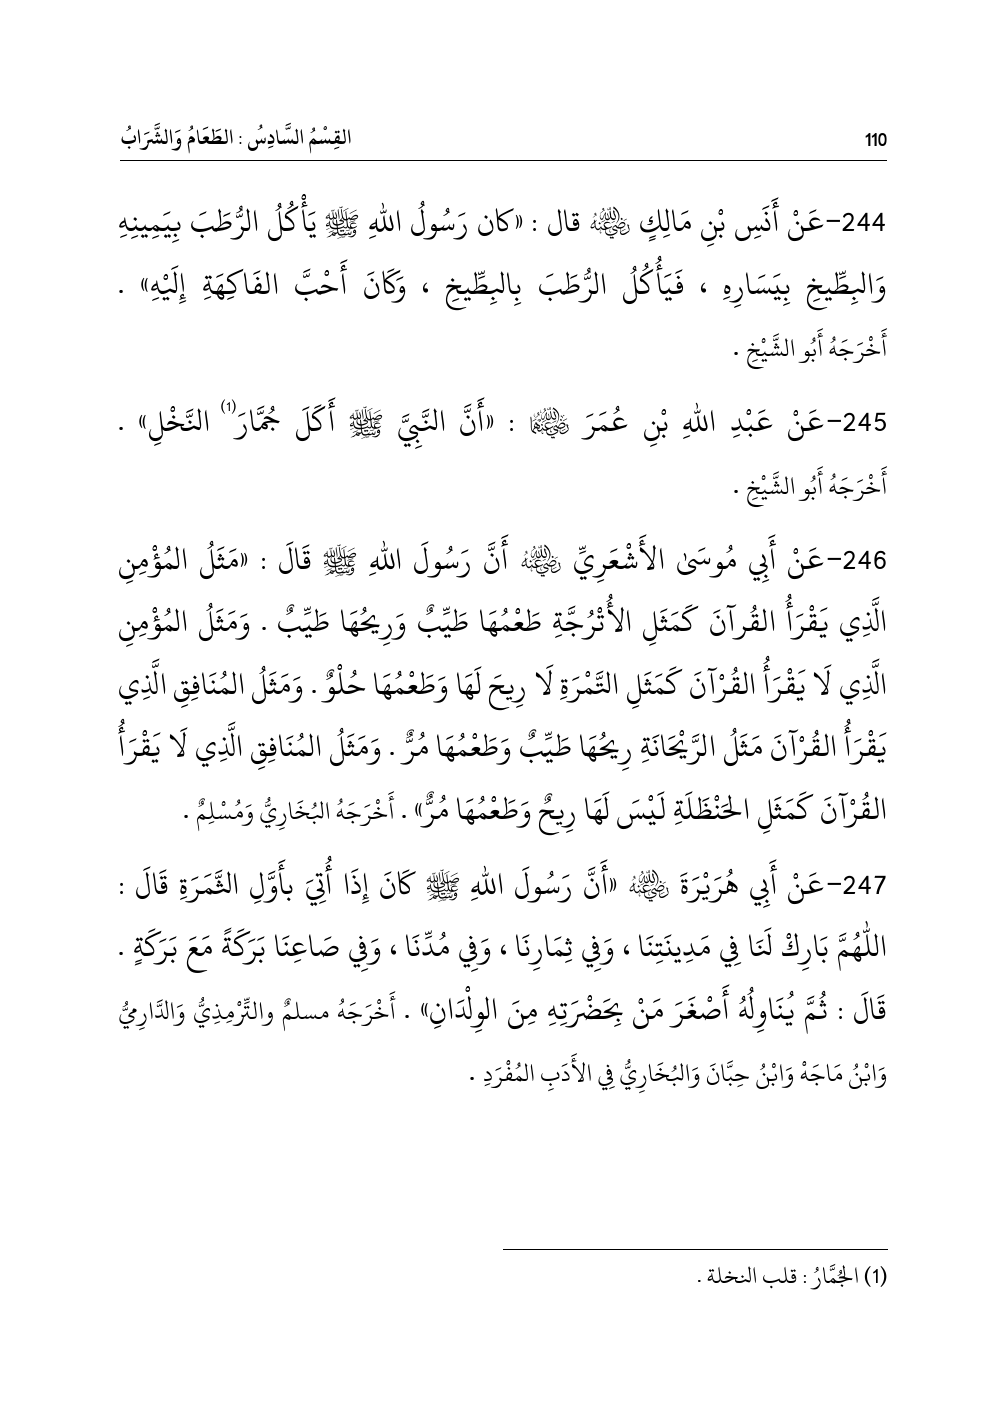 110
القِسْمُ السَّادِسُ : الطَعَامُ وَالشَّرَابُ
244-عَنْ أَنَسِ بْنِ مَالِكٍ رضي الله عنه قال : «كان رَسُولُ اللهِ ﷺ يَأْكُلُ الرُّطَبَ بِيَمِينِهِ
وَالبِطِّيخِ بِيَسَارِهِ ، فَيَأْكُلُ الرُّطَبَ بِالبِطِّيخِ ، وَكَانَ أَحْبَّ الفَاكِهَةِ إِلَيْهِ» .
أَخْرَجَهُ أَبُو الشَّيْخِ .
245-عَنْ عَبْدِ اللهِ بْنِ عُمَرَ رضي الله عنهما : «أَنَّ النَّبِيَّ ﷺ أَكَلَ جُمَّارَ(1) النَّخْلِ» .
أَخْرَجَهُ أَبُو الشَّيْخِ .
246-عَنْ أَبِي مُوسَىٰ الأَشْعَرِيِّ رضي الله عنه أَنَّ رَسُولَ اللهِ ﷺ قَالَ : «مَثَلُ المُؤْمِنِ
الَّذِي يَقْرَأُ القُرآنَ كَمَثَلِ الأُتْرُجَّةِ طَعْمُهَا طَيِّبٌ وَرِيحُهَا طَيِّبٌ . وَمَثَلُ المُؤْمِنِ
الَّذِي لَا يَقْرَأُ القُرْآنَ كَمَثَلِ التَّمْرَةِ لَا رِيحَ لَهَا وَطَعْمُهَا حُلْوٌ . وَمَثَلُ المُنَافِقِ الَّذِي
يَقْرَأُ القُرْآنَ مَثَلُ الرَّيْحَانَةِ رِيحُهَا طَيِّبٌ وَطَعْمُهَا مُرٌّ . وَمَثَلُ المُنَافِقِ الَّذِي لَا يَقْرَأُ
القُرْآنَ كَمَثَلِ الحَنْظَلَةِ لَيْسَ لَهَا رِيحٌ وَطَعْمُهَا مُرٌّ» . أَخْرَجَهُ البُخَارِيُّ وَمُسْلِمٌ .
247-عَنْ أَبِي هُرَيْرَةَ رضي الله عنه «أَنَّ رَسُولَ اللهِ ﷺ كَانَ إِذَا أُتِيَ بأَوَّلِ الثَّمَرَةِ قَالَ :
اللَّهُمَّ بَارِكْ لَنَا فِي مَدِينَتِنَا ، وَفِي ثِمَارِنَا ، وَفِي مُدِّنَا ، وَفِي صَاعِنَا بَرَكَةً مَعَ بَرَكَةٍ .
قَالَ : ثُمَّ يُنَاوِلُهُ أَصْغَرَ مَنْ بِحَضْرَتِهِ مِنَ الوِلْدَانِ» . أَخْرَجَهُ مسلمٌ والتِّرْمِذِيُّ وَالدَّارِمِيُّ
وَابْنُ مَاجَهْ وَابْنُ حِبَّانَ وَالبُخَارِيُّ فِي الأَدَبِ المُفْرَدِ .
(1) الجُمَّارُ : قلب النخلة .